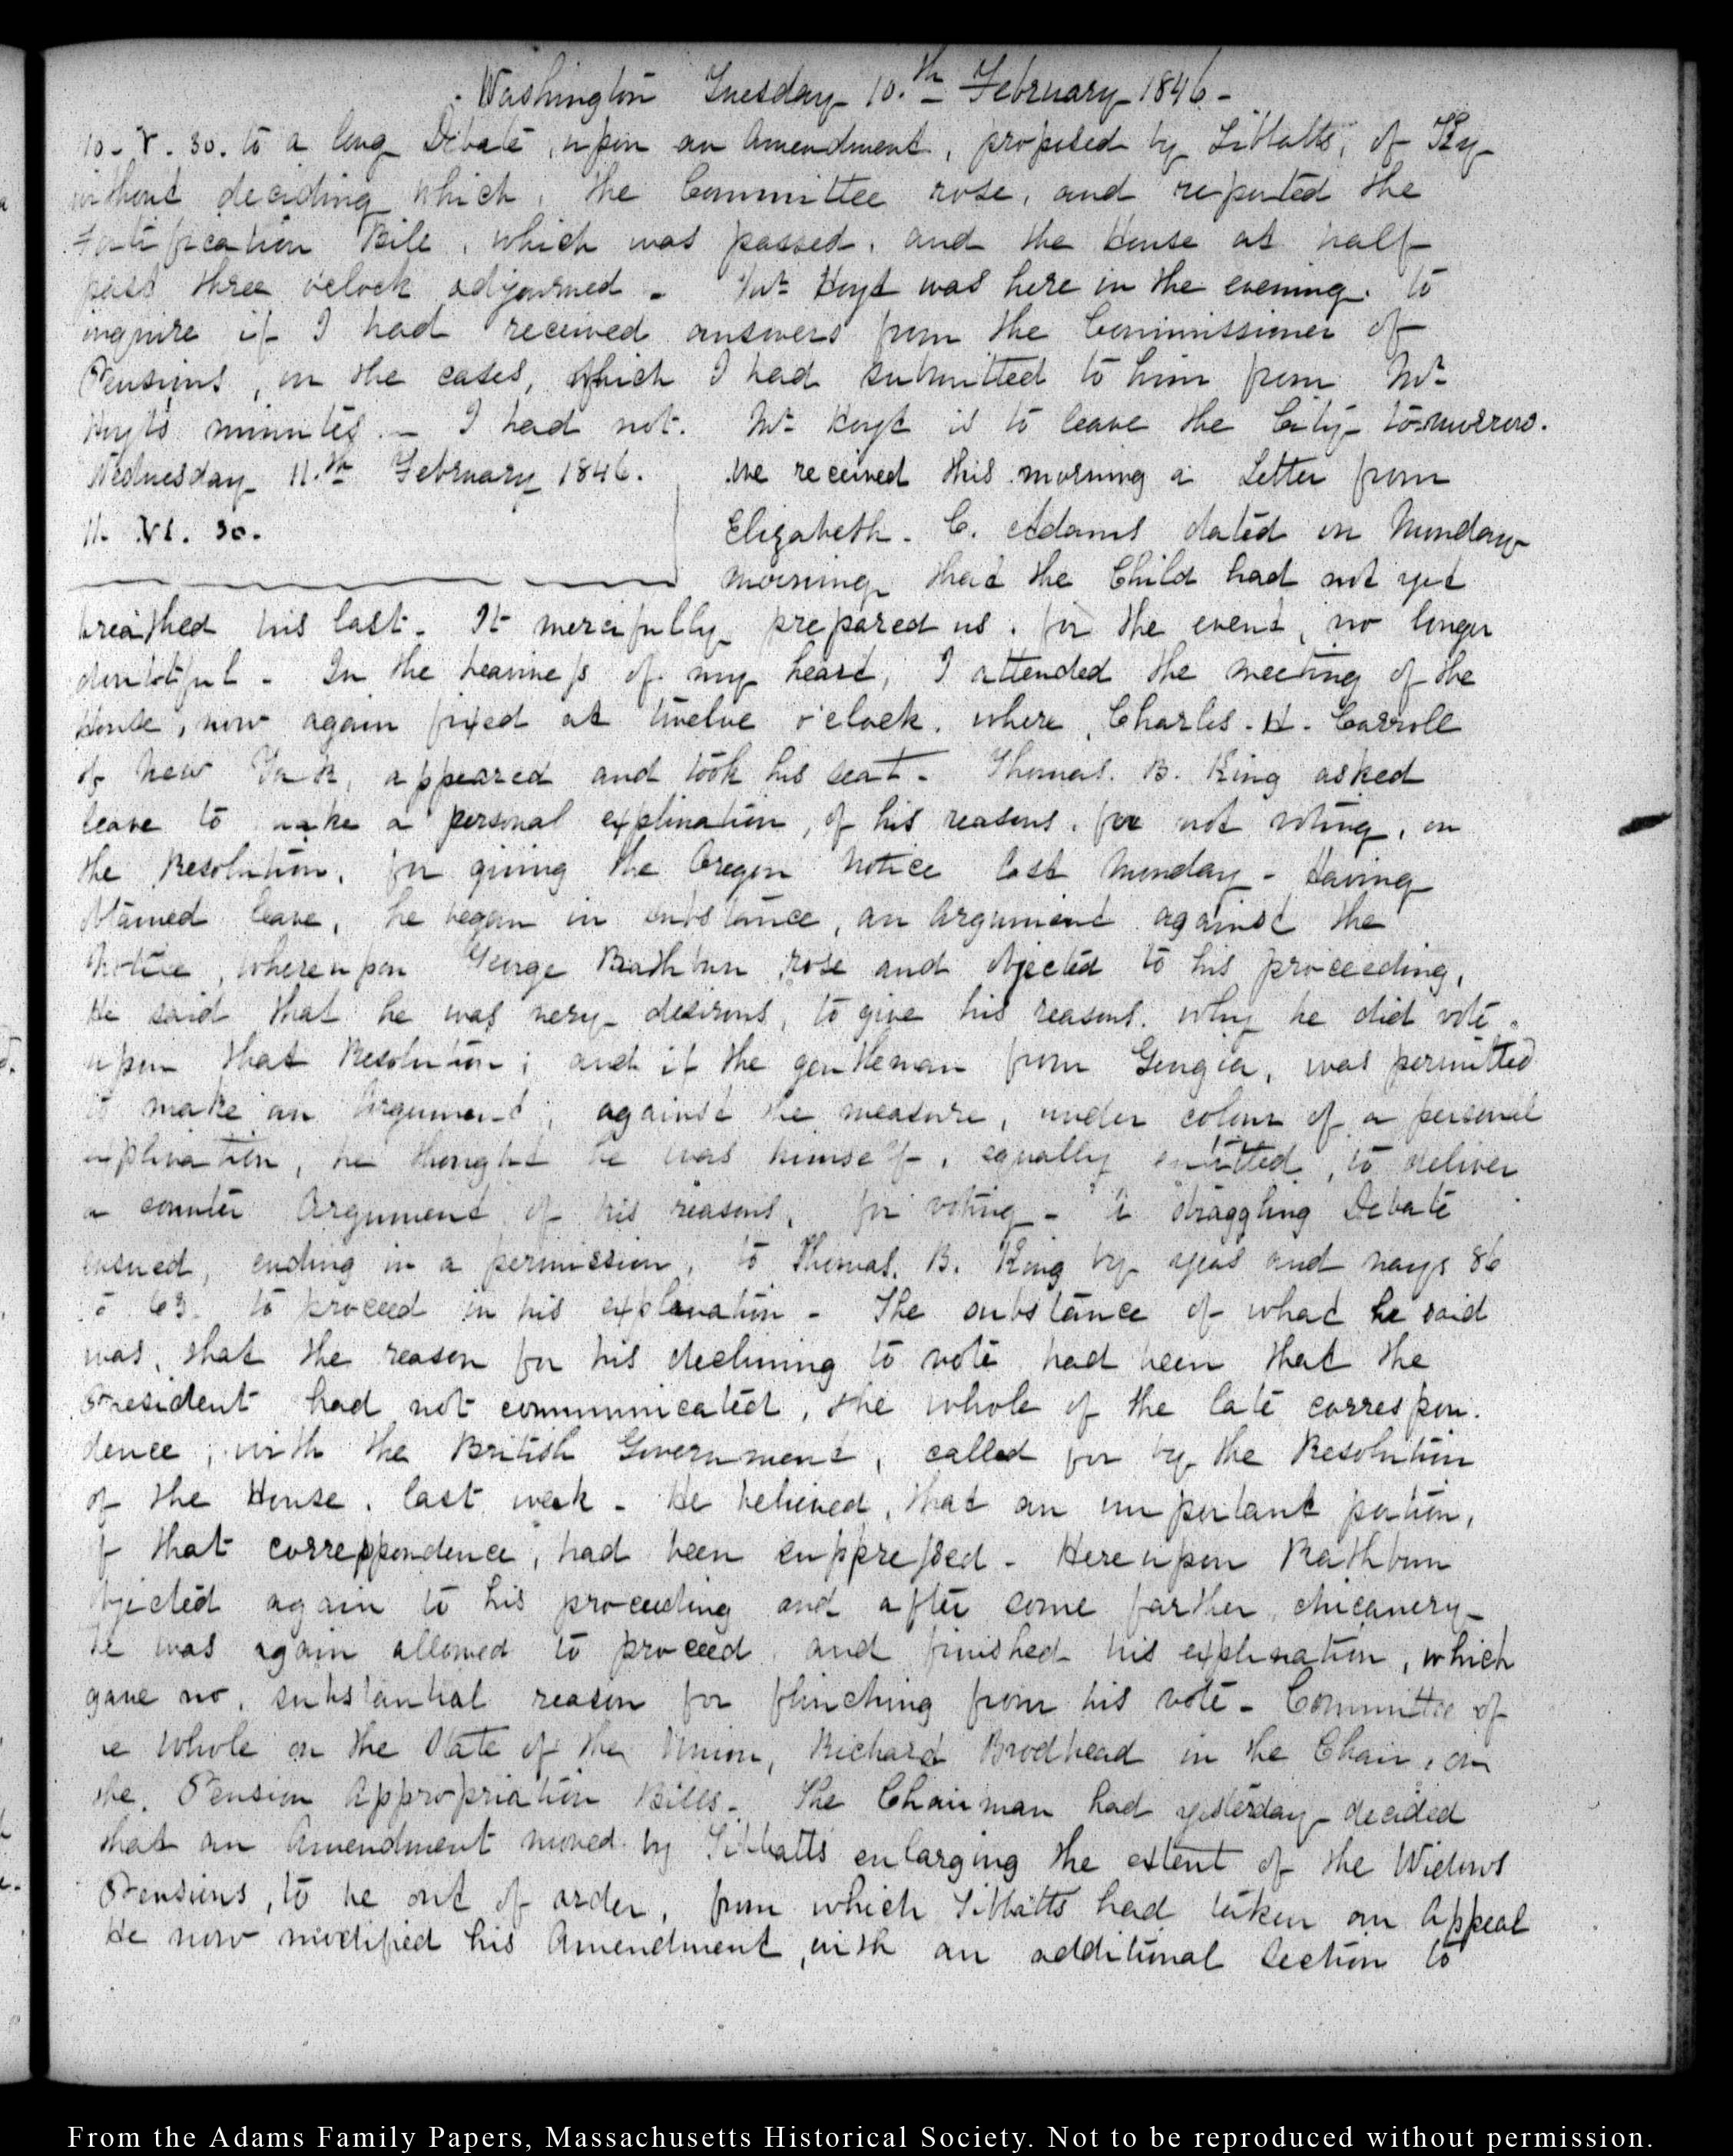 Washington Tuesday 10.th February 1846 -
10. V. 30. to a long Debate, upon an Amendment, proposed by Tibbatts, of Ky
without deciding which, the Committee rose, and reported the
Fortification Bill, which was passed, and the House at half
past three o'clock adjourned - Mr. Hoyt was here in the evening. to
inquire if I had received answers from the Commissioner of
Pensions, in the cases, which I had submitted to him from Mr.
Hoyt's minutes. - I had not. Mr. Hoyt is to leave the City to-morrow.
Wednesday 11.th February 1846.
11. VI. 30.
We received this morning a Letter from
Elizabeth. C. Adams dated on Monday
morning that the Child had not yet
breathed his last. It mercifully prepared us. for the event, no longer
doubtful - In the heaviness of my heart, I attended the meeting of the
House, now again fixed at twelve o'clock. where, Charles. H. Carroll
of New York, appeared and took his seat - Thomas. B. King asked
leave to make a personal explanation, of his reasons. for not voting, on
the Resolution, for giving the Oregon Notice last Monday - Having
obtained leave, he began in substance, an Argument against the
Notice, whereupon George Rathbun rose and objected to his proceeding,
He said that he was very desirous, to give his reasons. why he did vote.
upon that Resolution; and if the gentleman from Georgia, was permitted
to make an Argument, against the measure, under colour of a personal
explanation, he thought he was himself, equally entitled, to deliver
a counter Argument of his reasons, for voting - A straggling Debate
ensued, ending in a permission, to Thomas. B. King by yeas and nays 86
to 63. to proceed in his explanation - The substance of what he said
was, that the reason for his declining to vote had been that the
President had not communicated, the whole of the late correspon.
dence, with the British Government, called for by the Resolution
of the House, last week - He believed, that an important portion,
of that correspondence, had been suppressed - Hereupon Rathbun
objected again to his proceeding and after some farther, chicanery
he was again allowed to proceed, and finished his explanation, which
gave no, substantial reason for flinching from his vote - Committee of
the whole on the State of the Union, Richard Brodhead in the Chair, on
the Pension Appropriation Bills - The Chairman had yesterday decided
that an Amendment moved by Tibbatts enlarging the extent of the Widows
Pensions, to be out of order, from which Tibbatts had taken an Appeal
He now modified his Amendment, with an additional Section to
From the Adams Family Papers, Massachusetts Historical Society. Not to be reproduced without permission.